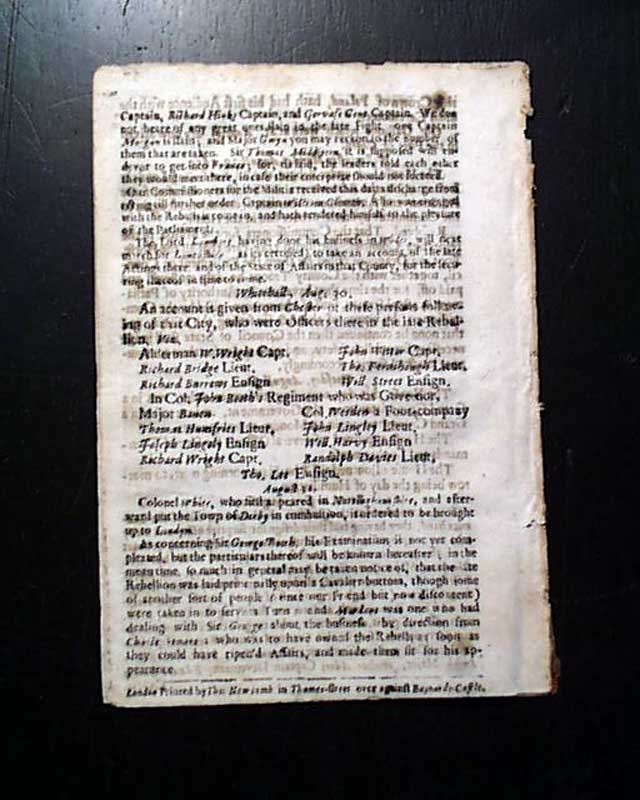 Captain, Richard Hinks Captain, and Gervase Gent Captain. We doe
not heare of any great ones slain in the late Fight, one Captain
Morgan is slain, and Major Gwyn you may reckon to the number of
them that are taken. Sir Thomas Middleton, it is supposed will
to get into for, the leaders told each other
they would meet there, in case their enterprise should not succeed.
Our Commissioners for the Militia received this day a discharge from
till further order. Captain he was engaged
with the Rebels is come in, and hath rendered himself to the pleasure
of the Parliament.
The Lord Lambert, having done his business in will next
march for as is reported) to take an account of the late
Actings there and of the State of Affairs in that County, for the
thereof in time to come.
Whitehall, Aug. 30.
An account is given from Chester of these persons follow-
ing of that City, who were Officers there in the late Rebel-
lion, Viz.
Alderman W. Wright Capt. John Capt.
Richard Bridge Lieut. Tho. Lieut.
Richard Burrows Ensign Will Street Ensign.
In Col. John Booth's Regiment who was Governor,
Major Col. a Foot-company
Thomas Humfries Lieut. John Lingley Lieut.
Joseph Lingely Ensign Will. Harvy Ensign
Richard Wright Capt. Randolph Davies Lieut.
Tho. Lee Ensign.
August 31.
Colonel White, who first appeared in Nottinghamshire, and after-
ward put the Town of Derby in combustion, is ordered to be brought
up to London.
As concerning Sir George Booth, his Examination is not yet com-
pleated, but the particulars thereof will be known hereafter; in the
mean time, so much in general may be taken notice of, that the late
Rebellion was laid principally upon a Cavalier-bottom, though some
of another sort of people (once our Friend but now discontent)
were taken in to serve a Turn was one who had
dealing with Sir George about the business by direction from
Charls who was to have owned the Rebellion soon as
they could have ripen'd Affairs, and made them fit for his ap-
pearance.
London Printed by Tho. Newcomb in Thames-street over against Baynards-Castle.